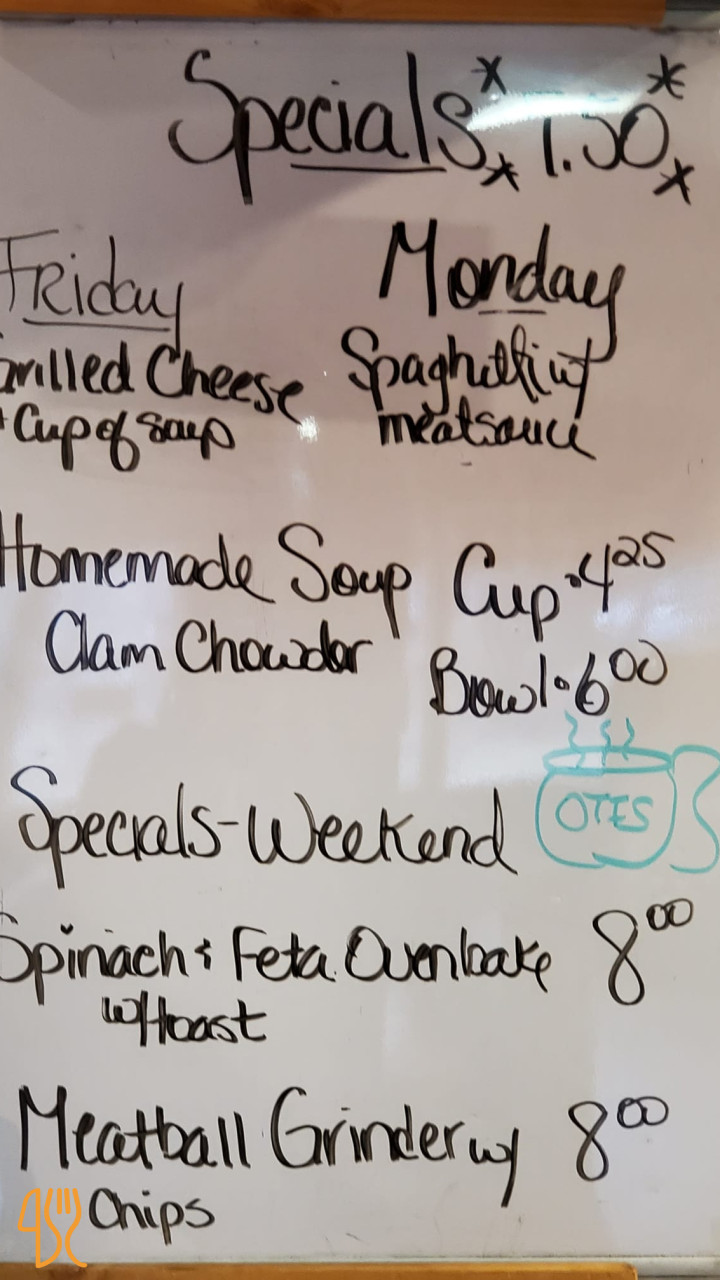 Specials 7.50
Friday
Grilled Cheese
+ Cup of soup
Monday
Spaghetti w/
meatsauce
Homemade Soup Cup • 4 25
Clam Chowder Bowl • 6 00
Specials - Weekend
OTES
Spinach & Feta Ovenbake 8 00
w/ toast
Meatball Grinder w/ 8 00
Chips